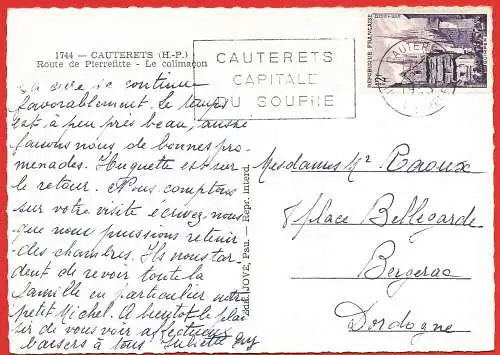 1744 - CAUTERETS (H.-P.)
Route de Pierrefitte - Le colimaçon
CAUTERETS
CAPITALE
DU SOUFRE
RÉPUBLIQUE FRANÇAISE
CAUTERETS
La cure se continue
favorablement. Le temps
est à peu près beau, aussi
faisons nous de bonnes pro-
menades. Huguette est sur
le retour. Nous comptons
sur votre visite écrivez-nous
que nous puissions retenir
des chambres. Ils nous tar-
dent de revoir toute la
famille en particulier notre
petit Michel. A bientôt le plai-
sir de vous voir affectueux
baisers à tous Juliette
Edit. JOVÉ, Pau. - Repr. interd.
Mesdames Mr Raoux
8 place Bellegarde
Bergerac
Dordogne